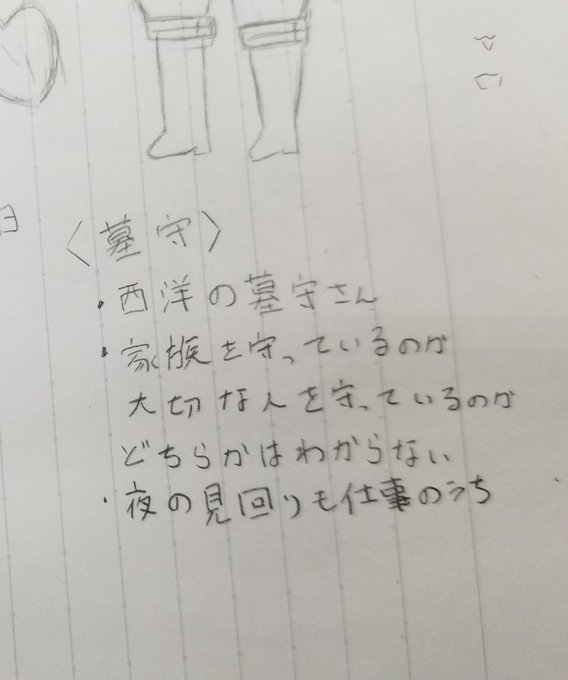 〈墓守〉
・西洋の墓守さん
・家族を守っているのか
大切な人を守っているのか
どちらかはわからない
・夜の見回りも仕事のうち